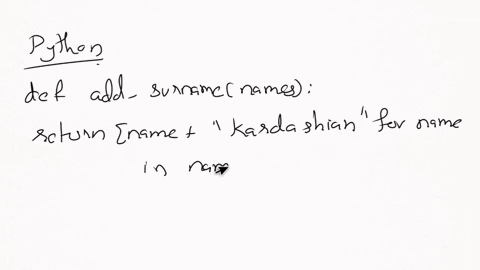 Python
def add_surname(names):
return [name + " Kardashian" for name
in nam